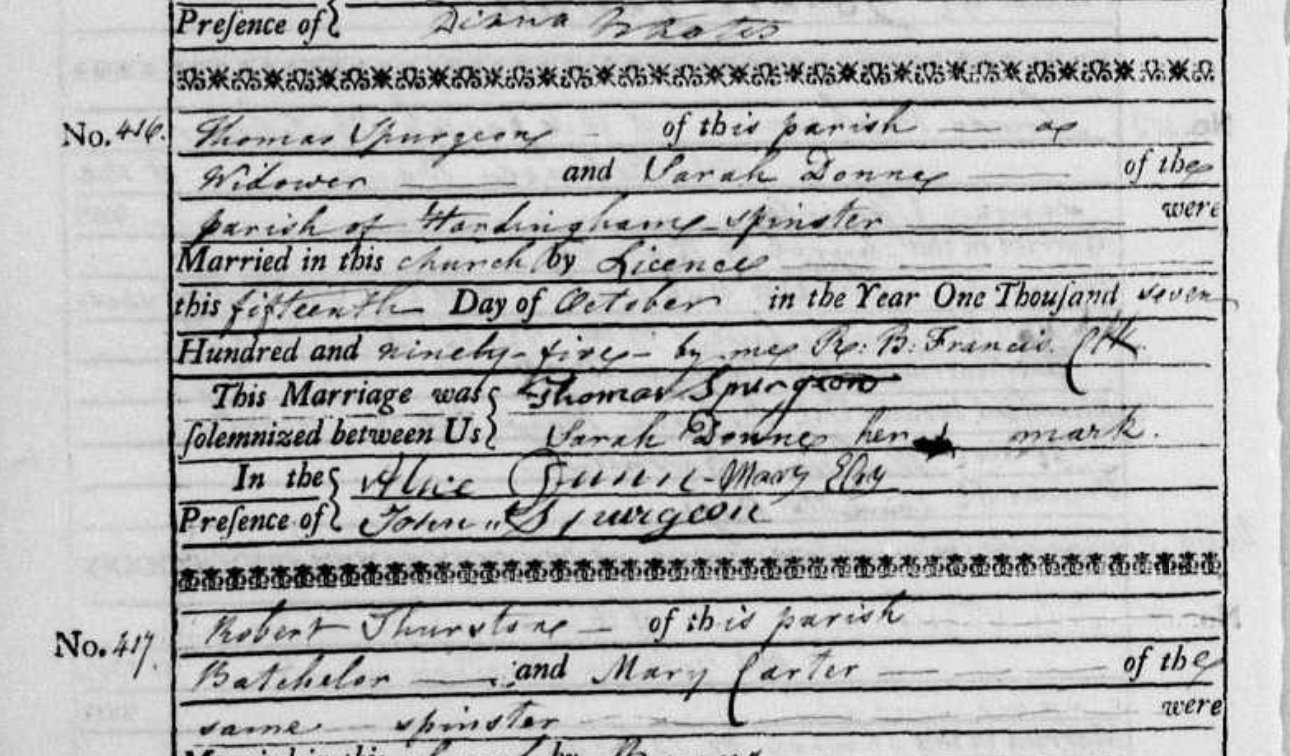 Presence of Diana
No. 416. Thomas Spurgeon - of this parish — a
Widower — and Sarah Donne — of the
parish of Hardingham spinster — were
Married in this church by Licence —
this fifteenth Day of October in the Year One Thouſand seven
Hundred and ninety-five - by me R: B: Francis. Clk.
This Marriage was Thomas Spurgeon
ſolemnized between Us Sarah Donne her mark.
In the Alice Dunn - Mary
Preſence of John Spurgeon
No. 417. Robert Thurston — of this parish
Batchelor — and Mary Carter — of the
same — spinster — were
Married in this by